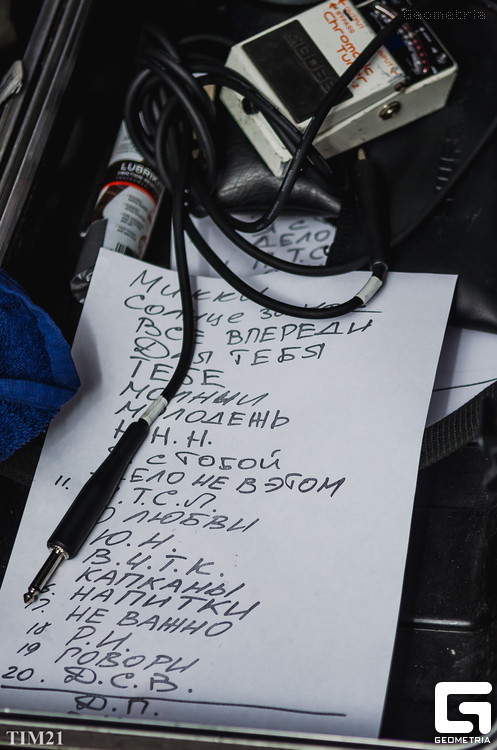 Geometria
OUTPUT
BYPASS
INPUT
BOSS
Chromatic
Tuner
LUBRIK
А С
ДЕЛО
Т.С.
МИККИ
СОЛНЦЕ
ВСЕ ВПЕРЕДИ
ДЛЯ ТЕБЯ
ТЕБЕ
МОЛНИИ
МОЛОДЕЖЬ
Н.Н.
С ТОБОЙ
11. ДЕЛО НЕ В ЭТОМ
Т.С.Л.
О ЛЮБВИ
Ю.Н.
В.Ч.Т.К.
КАПКАНЫ
17. НАПИТКИ
18 НЕ ВАЖНО
19 Р.И.
ГОВОРИ
20. Д.С.В.
Д.П.
TIM21
G
GEOMETRIA